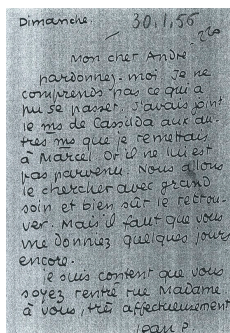 Dimanche. 30.1.55
Mon cher André
pardonnez-moi. Je ne
comprends pas ce qui a
pu se passer. J'avais joint
le ms de Cassida aux au-
tres ms que je remettais
à Marcel. Or il ne lui est
pas parvenu. Nous allons
le chercher avec grand
soin et bien sûr le retrou-
ver. Mais il faut que vous
me donniez quelques jours
encore.
Je suis content que vous
soyez rentré rue Madame.
à vous, très affectueusement
Jean P.